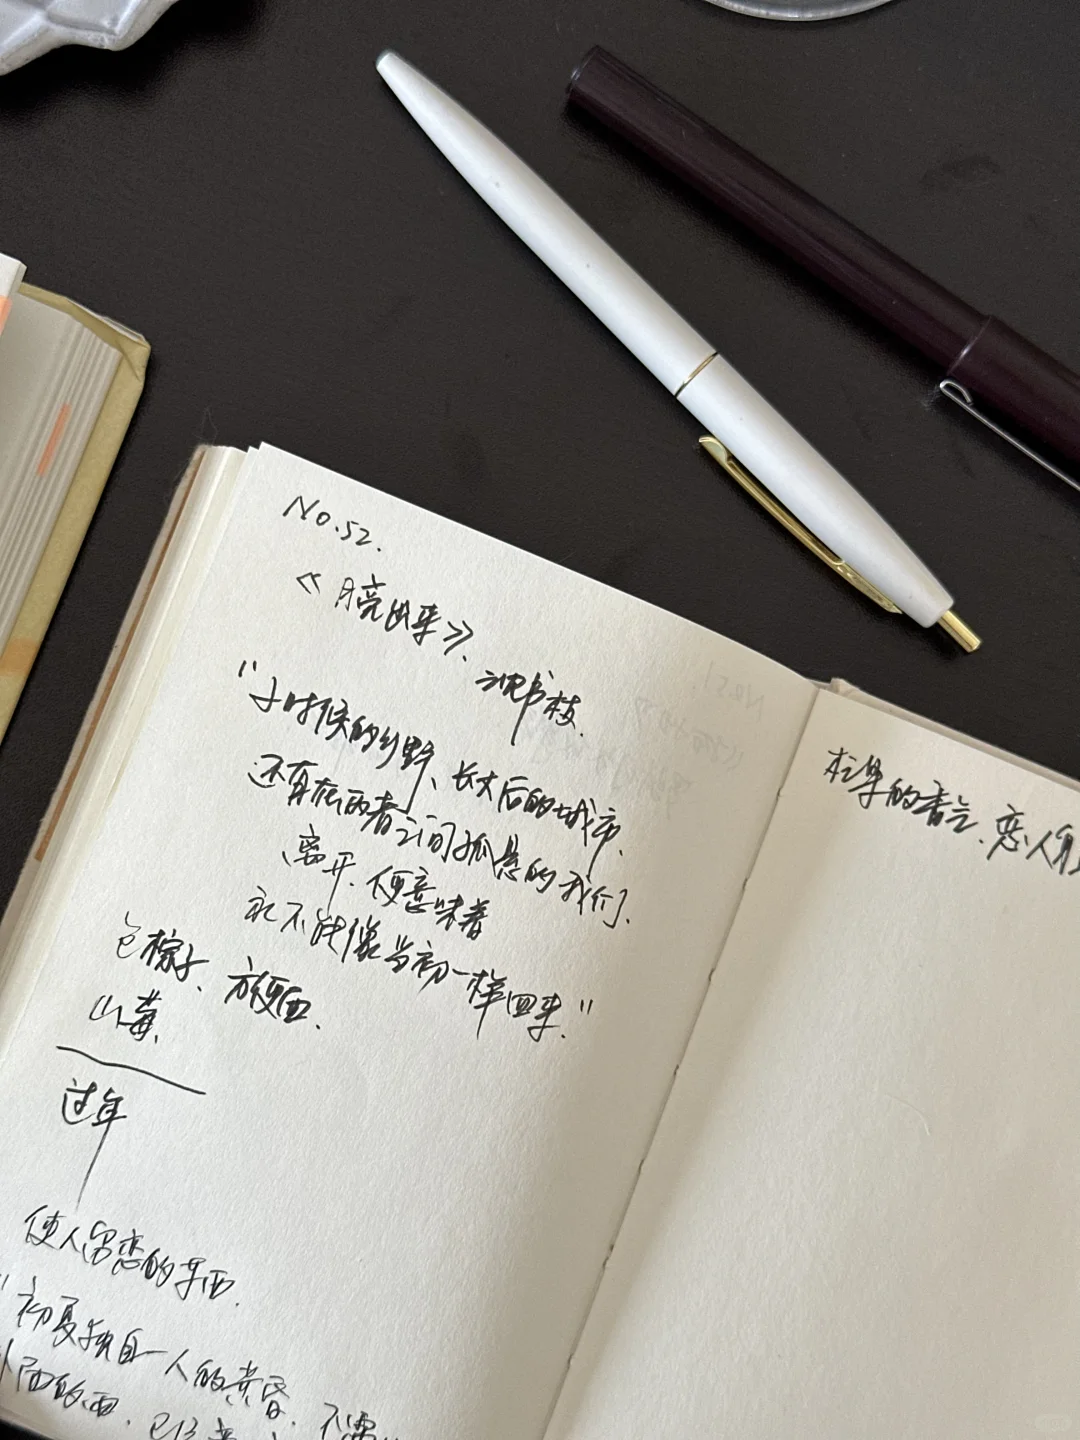 No.52.
《月亮出来》. 沈书枝.
"小时候的乡野、长大后的城市、
还有在两者之间孤悬的我们.
离开.便意味着
永不能像当初一样回来."
包粽子、方便面.
山莓.
过年
使人留恋的东西.
"初夏独自一人的黄昏. 不需
外面的雨.已经
的香气.恋人身